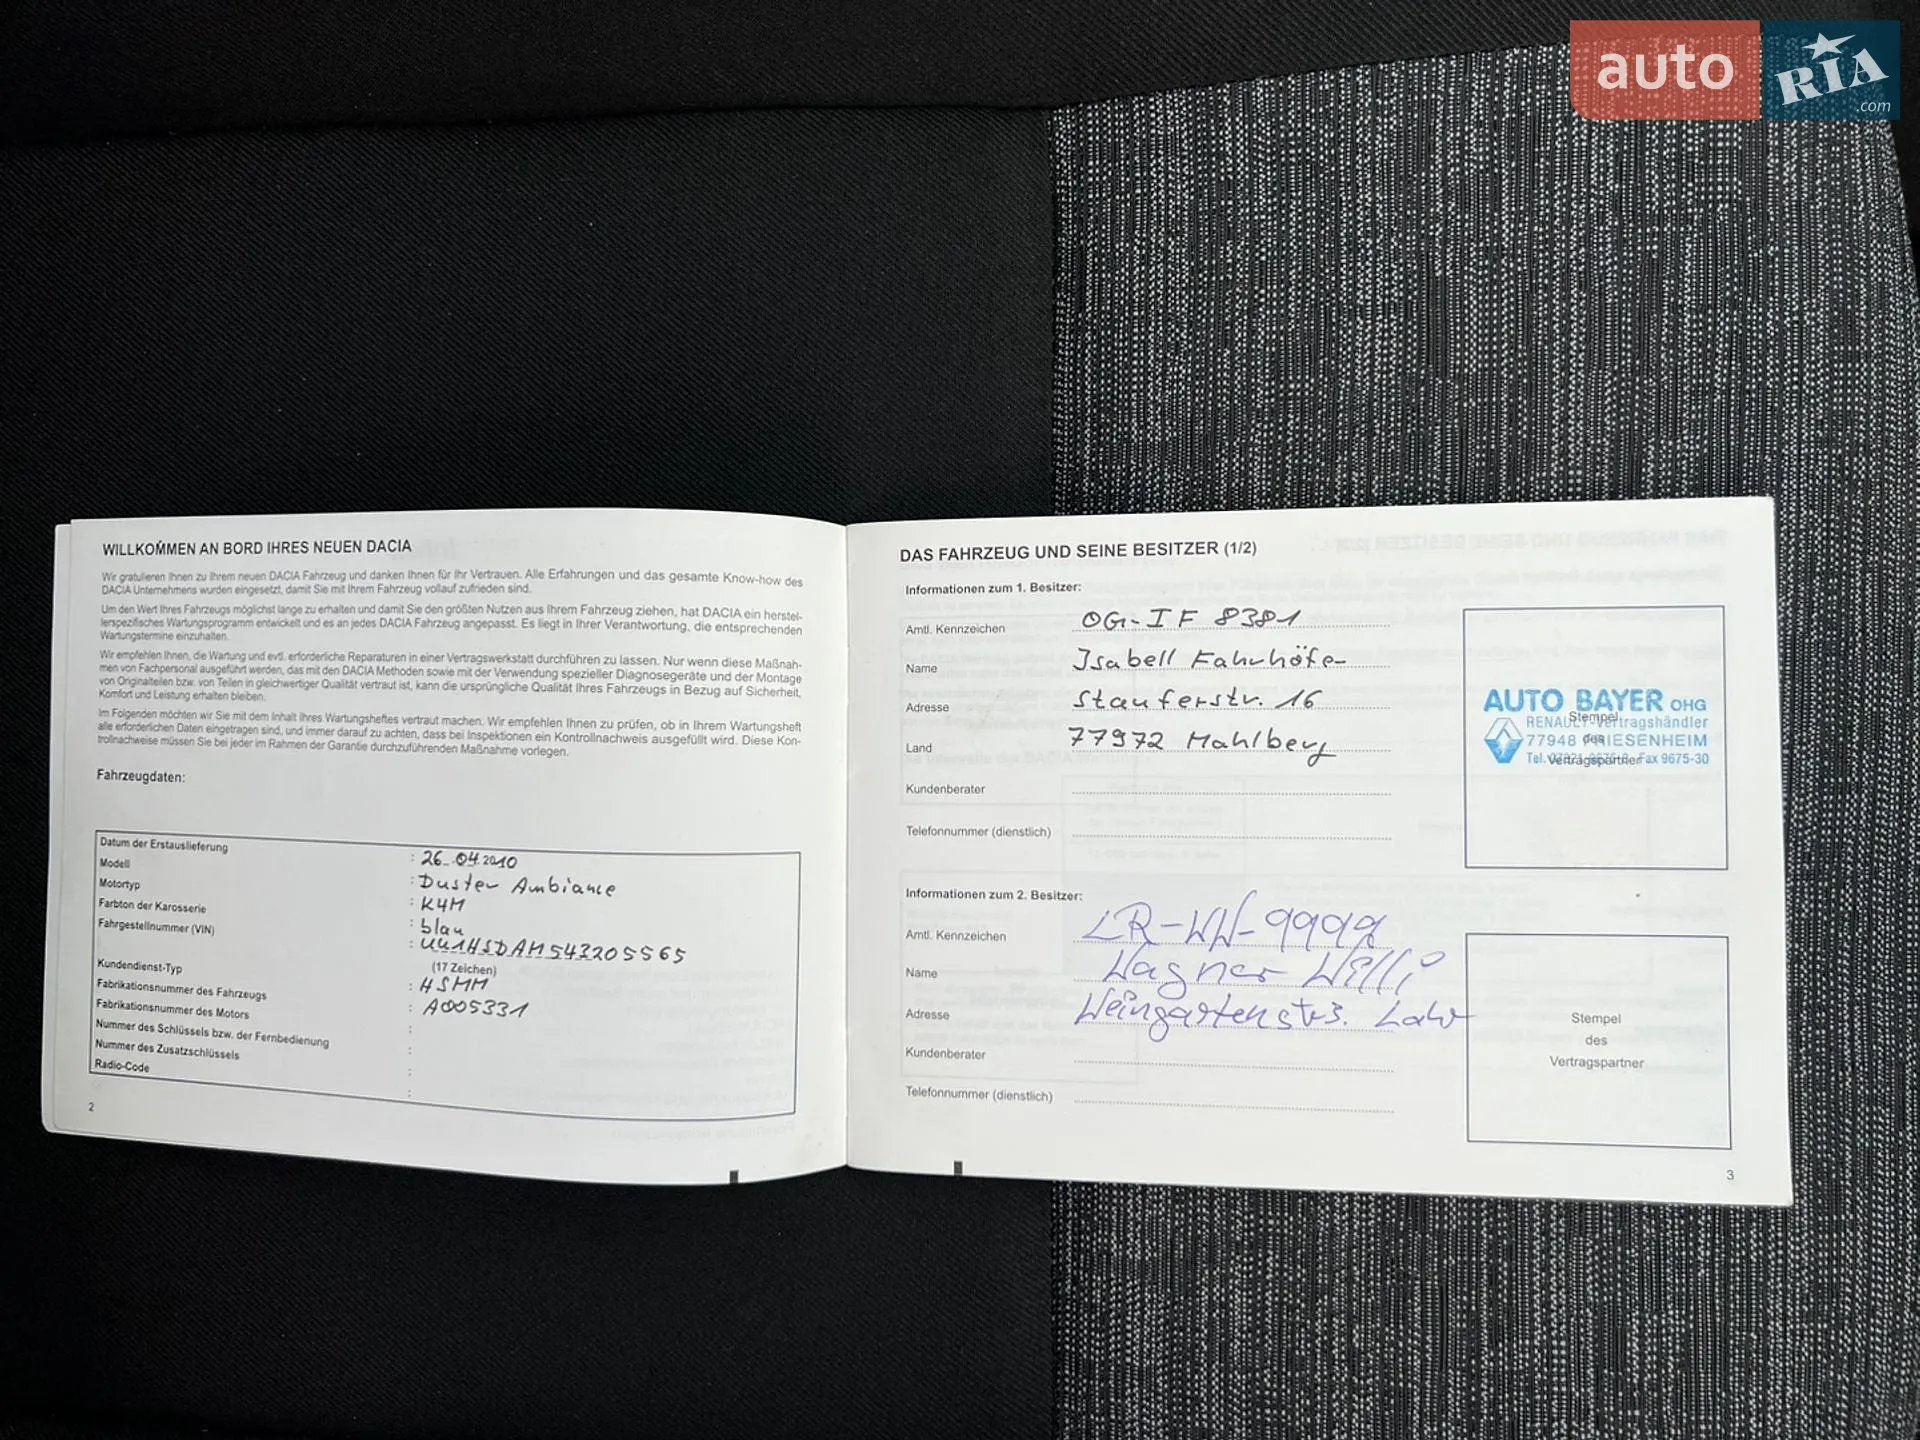 auto RIA .com
WILLKOMMEN AN BORD IHRES NEUEN DACIA
Wir gratulieren Ihnen zu Ihrem neuen DACIA Fahrzeug und danken Ihnen für Ihr Vertrauen. Alle Erfahrungen und das gesamte Know-how des
DACIA Unternehmens wurden eingesetzt, damit Sie mit Ihrem Fahrzeug vollauf zufrieden sind.
Um den Wert Ihres Fahrzeugs möglichst lange zu erhalten und damit Sie den größten Nutzen aus Ihrem Fahrzeug ziehen, hat DACIA ein herstel-
lerspezifisches Wartungsprogramm entwickelt und es an jedes DACIA Fahrzeug angepasst. Es liegt in Ihrer Verantwortung, die entsprechenden
Wartungstermine einzuhalten.
Wir empfehlen Ihnen, die Wartung und evtl. erforderliche Reparaturen in einer Vertragswerkstatt durchführen zu lassen. Nur wenn diese Maßnah-
men von Fachpersonal ausgeführt werden, das mit den DACIA Methoden sowie mit der Verwendung spezieller Diagnosegeräte und der Montage
von Originalteilen bzw. von Teilen in gleichwertiger Qualität vertraut ist, kann die ursprüngliche Qualität Ihres Fahrzeugs in Bezug auf Sicherheit,
Komfort und Leistung erhalten bleiben.
Im Folgenden möchten wir Sie mit dem Inhalt Ihres Wartungsheftes vertraut machen. Wir empfehlen Ihnen zu prüfen, ob in Ihrem Wartungsheft
alle erforderlichen Daten eingetragen sind, und immer darauf zu achten, dass bei Inspektionen ein Kontrollnachweis ausgefüllt wird. Diese Kon-
trollnachweise müssen Sie bei jeder im Rahmen der Garantie durchzuführenden Maßnahme vorlegen.
Fahrzeugdaten:
Datum der Erstauslieferung : 26.04.2010
Modell : Duster Ambiance
Motortyp : K4M
Farbton der Karosserie : blau
Fahrgestellnummer (VIN) : UU1HSDAM543205565
(17 Zeichen)
Kundendienst-Typ : HSMM
Fabrikationsnummer des Fahrzeugs : A005331
Fabrikationsnummer des Motors :
Nummer des Schlüssels bzw. der Fernbedienung :
Nummer des Zusatzschlüssels :
Radio-Code :
2
DAS FAHRZEUG UND SEINE BESITZER (1/2)
Informationen zum 1. Besitzer:
Amtl. Kennzeichen OG-IF 8381
Name Isabell Fahrhöfer
Adresse Stauferstr. 16
Land 77972 Mahlberg
Kundenberater
Telefonnummer (dienstlich)
AUTO BAYER OHG
RENAULT-Vertragshändler
77948 FRIESENHEIM
Tel. Fax 9675-30
Stempel
des
Vertragspartner
Informationen zum 2. Besitzer:
Amtl. Kennzeichen LR-WW-9999
Name Wagner Willi
Adresse Weingartenstr. Lahr
Kundenberater
Telefonnummer (dienstlich)
Stempel
des
Vertragspartner
3